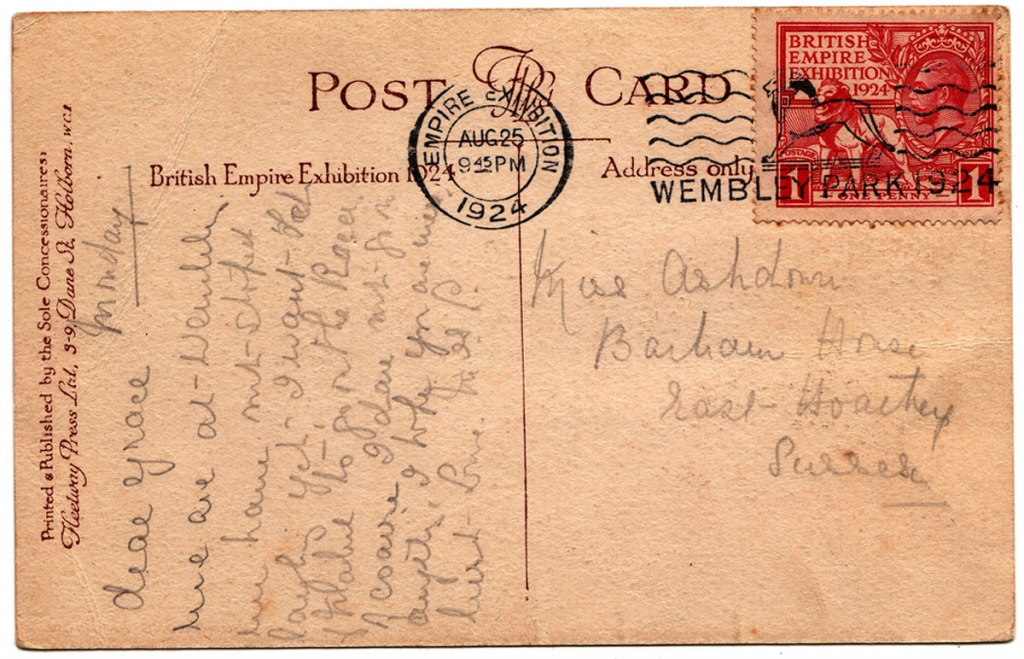 POST CARD
British Empire Exhibition 1924
Address only
EMPIRE EXHIBITION
AUG 25
9 45 PM
1924
WEMBLEY PARK 1924
BRITISH
EMPIRE
EXHIBITION
1924
POSTAGE
1 ONE PENNY 1
Printed & Published by the Sole Concessionaires:
Fleetway Press Ltd, 3-9, Dane St, Holborn. W.C.1
Monday
dear Grace
we are at Wembley
we have not stopped
laughing yet I want Pat
to go on the Racer
of course I dare not go on
I hope you are nice
best love
Miss Ashdown
Barham House
East Hoathly
Sussex